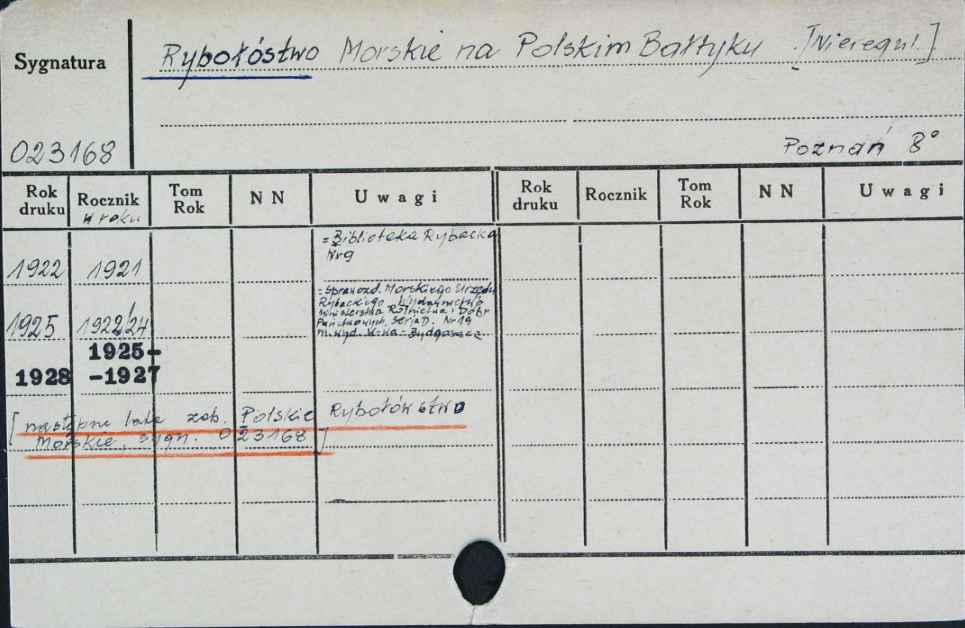 Sygnatura
Rybołóstwo Morskie na Polskim Bałtyku [Nieregul.]
023168
Poznań 8°
Rok druku Rocznik w roku Tom Rok N N Uwagi Rok druku Rocznik Tom Rok N N Uwagi
1922 1921 = Biblioteka Rybacka
Nr 9
1925 1922/24 = Sprawozd. Morskiego Urzędu
Rybackiego. Wydawnictwo
Ministerstwa Rolnictwa i Dóbr
Państwowych, Serja D. Nr 19
M. wyd. W-wa - Bydgoszcz
1925-
1928 -1927
[następne lata zob. Polskie Rybołówstwo
Morskie, sygn. 023168]